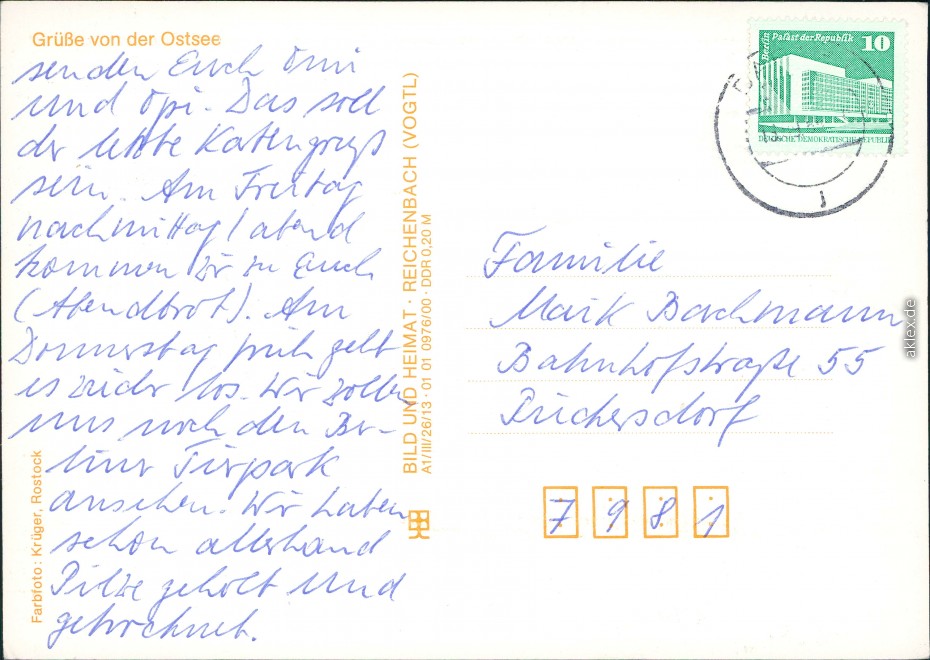 Grüße von der Ostsee
senden Euch Omi
und Opi. Das soll
der letzte Kartengruß
sein. Am Freitag
nachmittag/abend
kommen wir zu Euch
(Abendbrot). Am
Donnerstag früh geht
es wieder los. Wir wollen
uns noch den Ber-
liner Tierpark
ansehen. Wir haben
schon allerhand
Pilze geholt und
getrocknet.
Farbfoto: Krüger, Rostock
BILD UND HEIMAT · REICHENBACH (VOGTL)
A1/III/26/13 · 01 01 0976/00 · DDR 0,20 M
Berlin Palast der Republik 10
DEUTSCHE DEMOKRATISCHE REPUBLIK
Familie
Maik Bachmann
Bahnhofstraße 55
7981
aklex.de